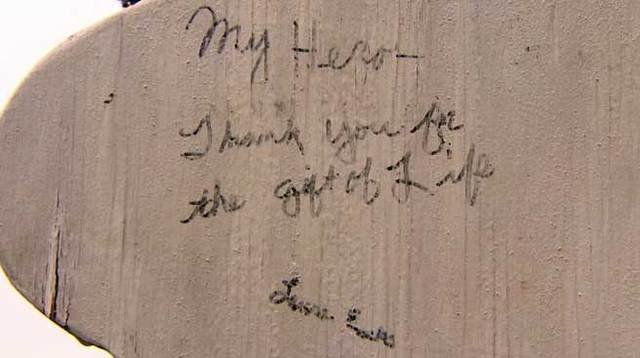 My Hero-
Thank you for
the gift of Life